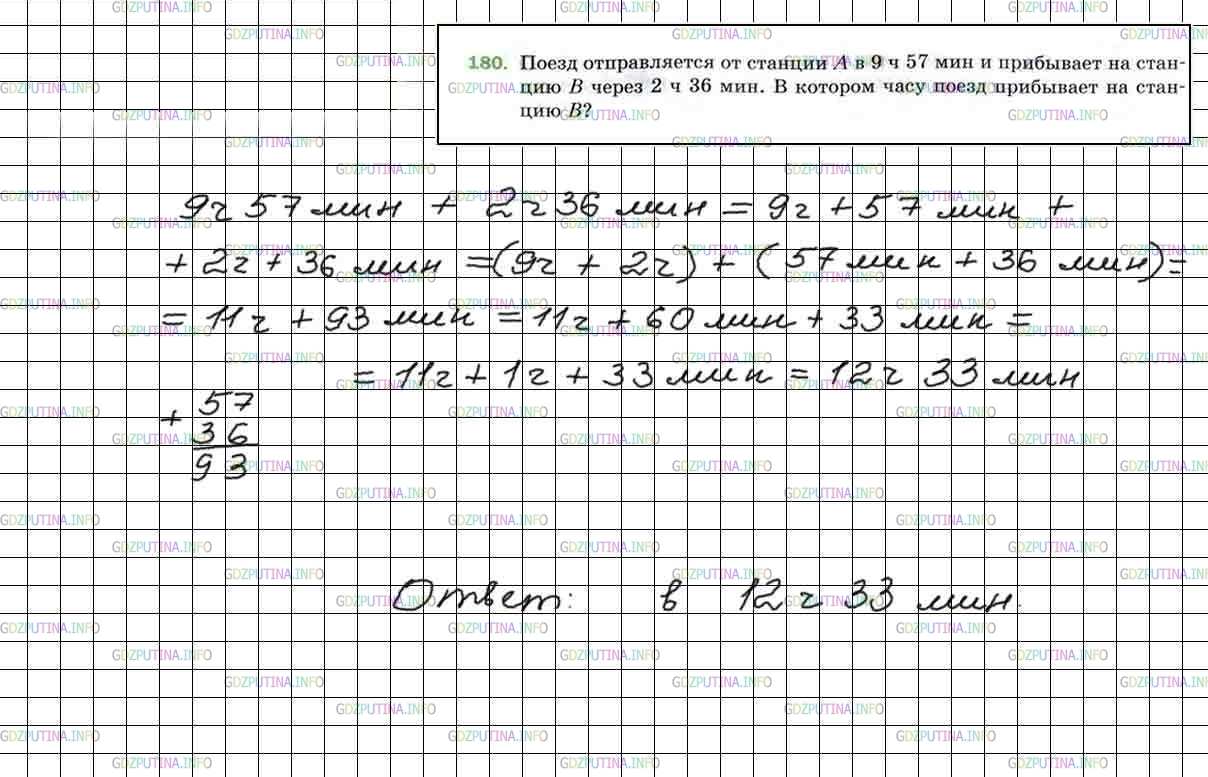 180. Поезд отправляется от станции A в 9 ч 57 мин и прибывает на стан-
цию B через 2 ч 36 мин. В котором часу поезд прибывает на стан-
цию B?
9ч 57 мин + 2ч 36 мин = 9ч + 57 мин +
+ 2ч + 36 мин = (9ч + 2ч) + (57 мин + 36 мин) =
= 11ч + 93 мин = 11ч + 60 мин + 33 мин =
= 11ч + 1ч + 33 мин = 12ч 33 мин
+ 57
36
93
Ответ: в 12 ч 33 мин.
GDZPUTINA.INFO